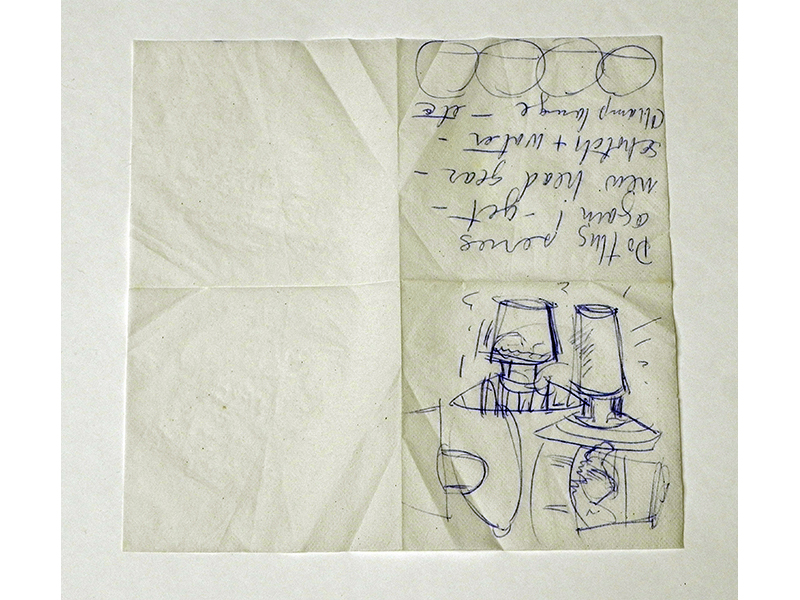 Do this series
again! - get -
new head gear -
schotch + water -
Champ lange - etc